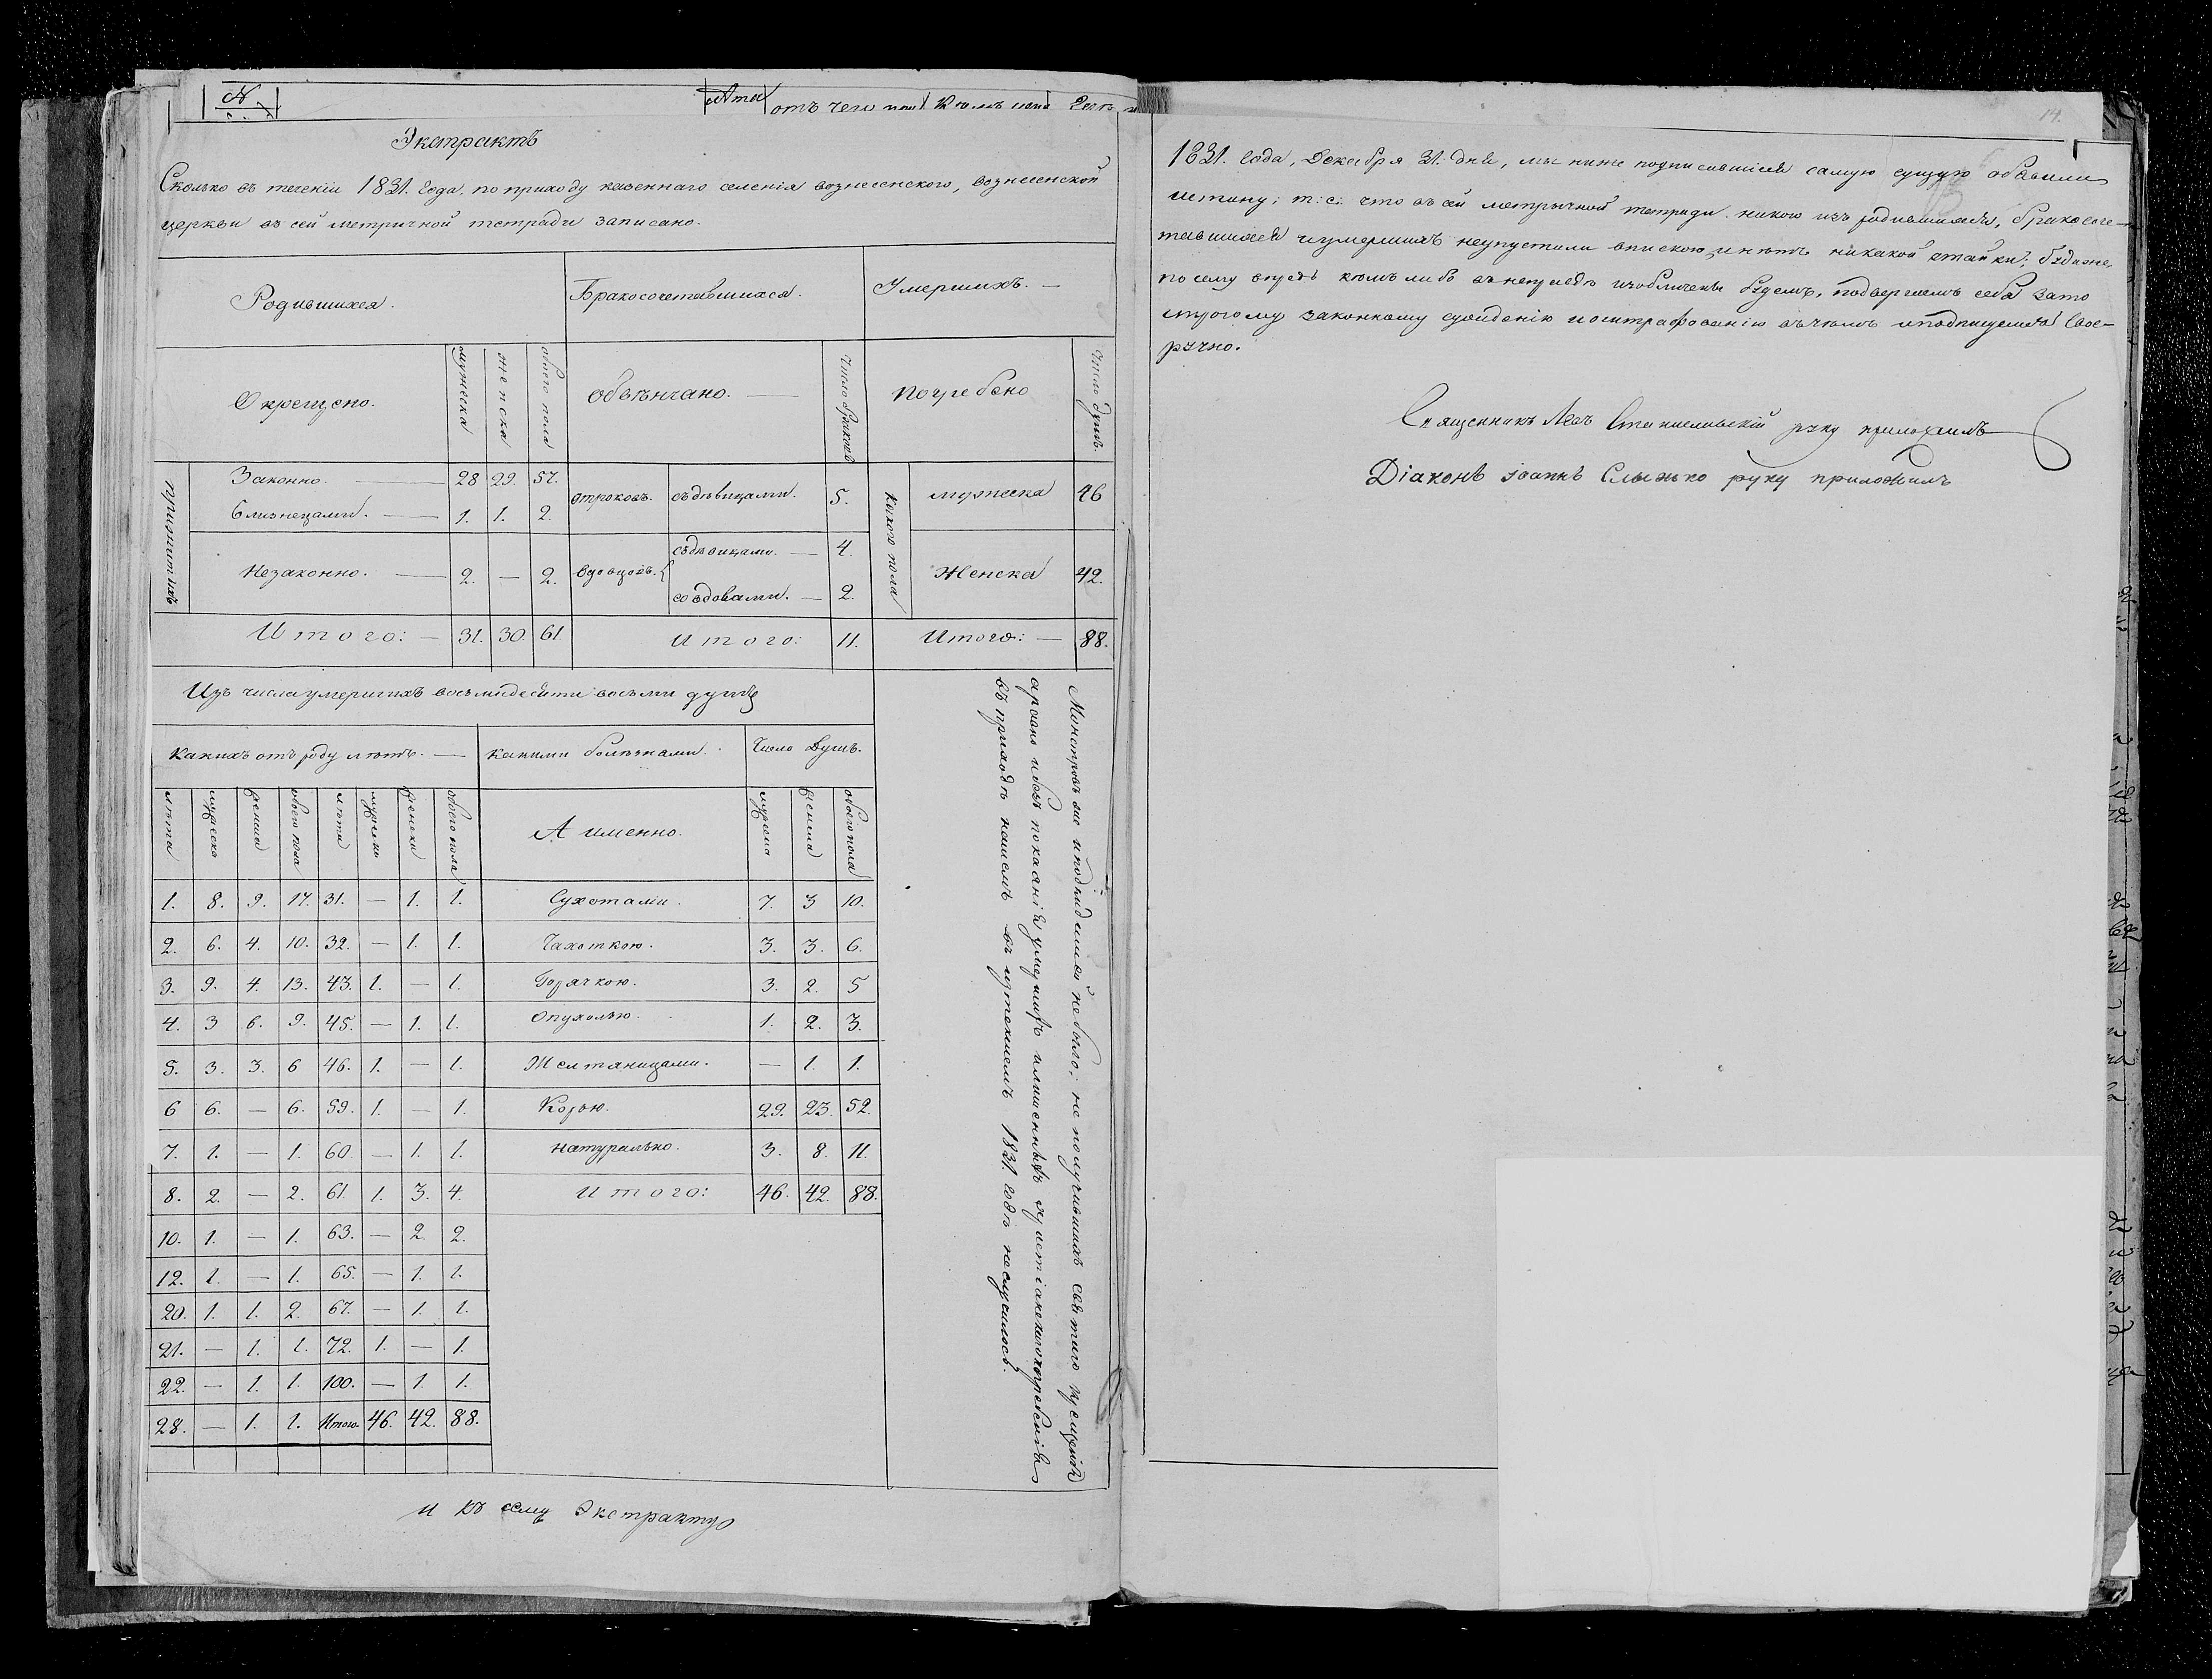 №
Лета отъ чего
Экстрактъ
Сколько въ теченіи 1831. Года, по приходу казеннаго селенія вознесенского, вознесенской
церкви въ сей метричной тетради записано.
Родившихся. Бракосочетавшихся. Умершихъ. —
Окрещено. мужеска женска обоего пола обвѣнчано. — число браковъ погребено число душъ.
Законно. — 28 29. 57. отроковъ. съдѣвицами. 5. какого пола мужеска 46
Близнецами. — 1. 1. 2.
съдѣвицами. — 4.
Незаконно. — 2. — 2. вдовцовъ. Женска 42.
совдовами. — 2.
Итого: — 31. 30. 61 Итого: 11. Итого: — 88.
Изъ числа умершихъ восьмидесяти восьми душъ
какихъ отъ роду лѣтъ. — какими болѣзнами. Число Душъ.
лѣта мужеска женска обоего пола лѣта мужеска женска обоего пола А именно. мужеска женска обоего пола
1. 8. 9. 17. 31. — 1. 1. Сухотами. 7. 3 10.
2. 6. 4. 10. 32. — 1. 1. Чахоткою. 3. 3. 6.
3. 9. 4. 13. 43. 1. — 1. Горячкою. 3. 2. 5
4. 3 6. 9. 45. — 1. 1. Опухолью. 1. 2. 3.
5. 3. 3. 6 46. 1. — 1. Желтяницами. — 1. 1.
6 6. — 6. 59. 1. — 1. Корью. 29. 23. 52.
7. 1. — 1. 60. — 1. 1. натурально. 3. 8. 11.
8. 2. — 2. 61. 1. 3. 4. Итого: 46. 42. 88.
10. 1. — 1. 63. — 2. 2.
12. 1. — 1. 65. — 1. 1.
20. 1. 1. 2. 67. — 1. 1.
21. — 1. 1. 72. 1. — 1.
22. — 1. 1. 100. — 1. 1.
28. — 1. 1. Итого. 46. 42. 88.
Монстровъ же и подкидышей не было; не получившихъ святаго крещенія
и безъ покаянія умершихъ и лишенныхъ христіанскаго погребенія
въ приходѣ нашемъ въ истекшемъ 1831. годѣ не случилось.
и къ сему Экстракту
14.
1831. года, Декабря 31. дня, мы ниже подписавшіеся самую сущую объявили
истину; т: е: что въ сей метрычной тетради. никого изъ родившихся, бракосоче-
тавшихся и умершихъ неупустили впискою, и нѣтъ никакой утайки; буде же,
по сему впредь кѣмъ либо въ неправдѣ изобличены будемъ, подвергаемъ себя зато
строгому законному сужденію и оштрафованію въчемъ и подписуемся Свое-
ручно.
Священникъ Левъ Станиславскій руку приложилъ
Діаконъ Іоаннъ Слынько руку приложилъ